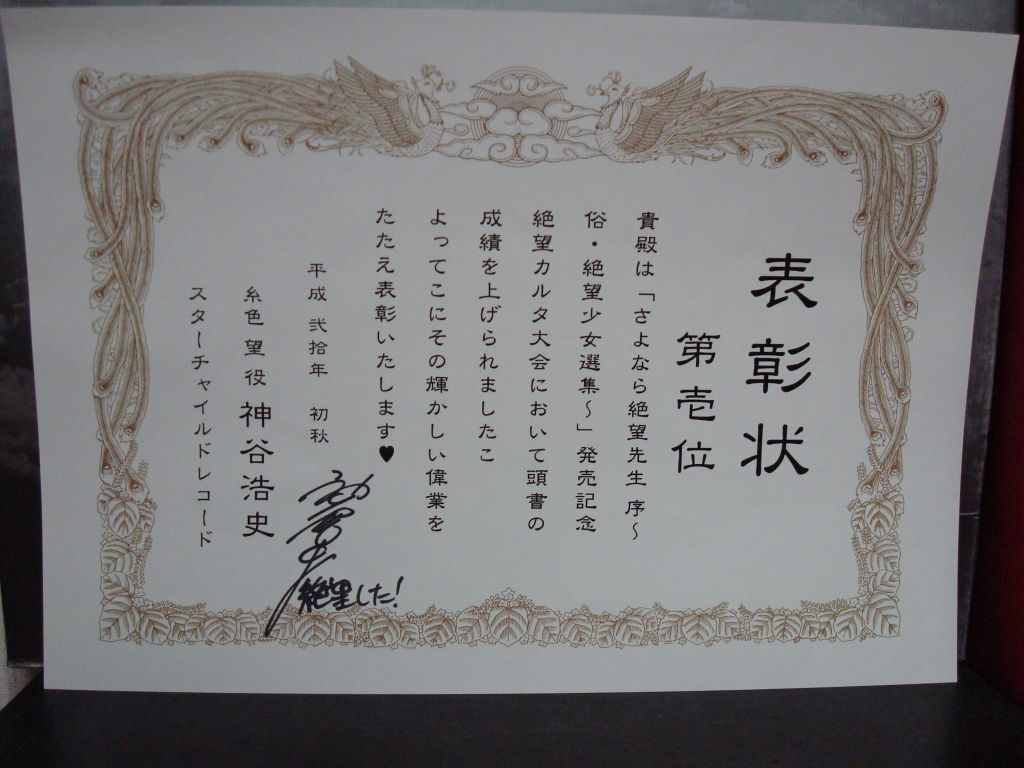 表彰状
第壱位
貴殿は「さよなら絶望先生 序～
俗・絶望少女選集～」発売記念
絶望カルタ大会において頭書の
成績を上げられましたこ
よってこにその輝かしい偉業を
たたえ表彰いたします♥
平成 弐拾年 初秋
糸色望役 神谷浩史
スターチャイルドレコード
絶望した!